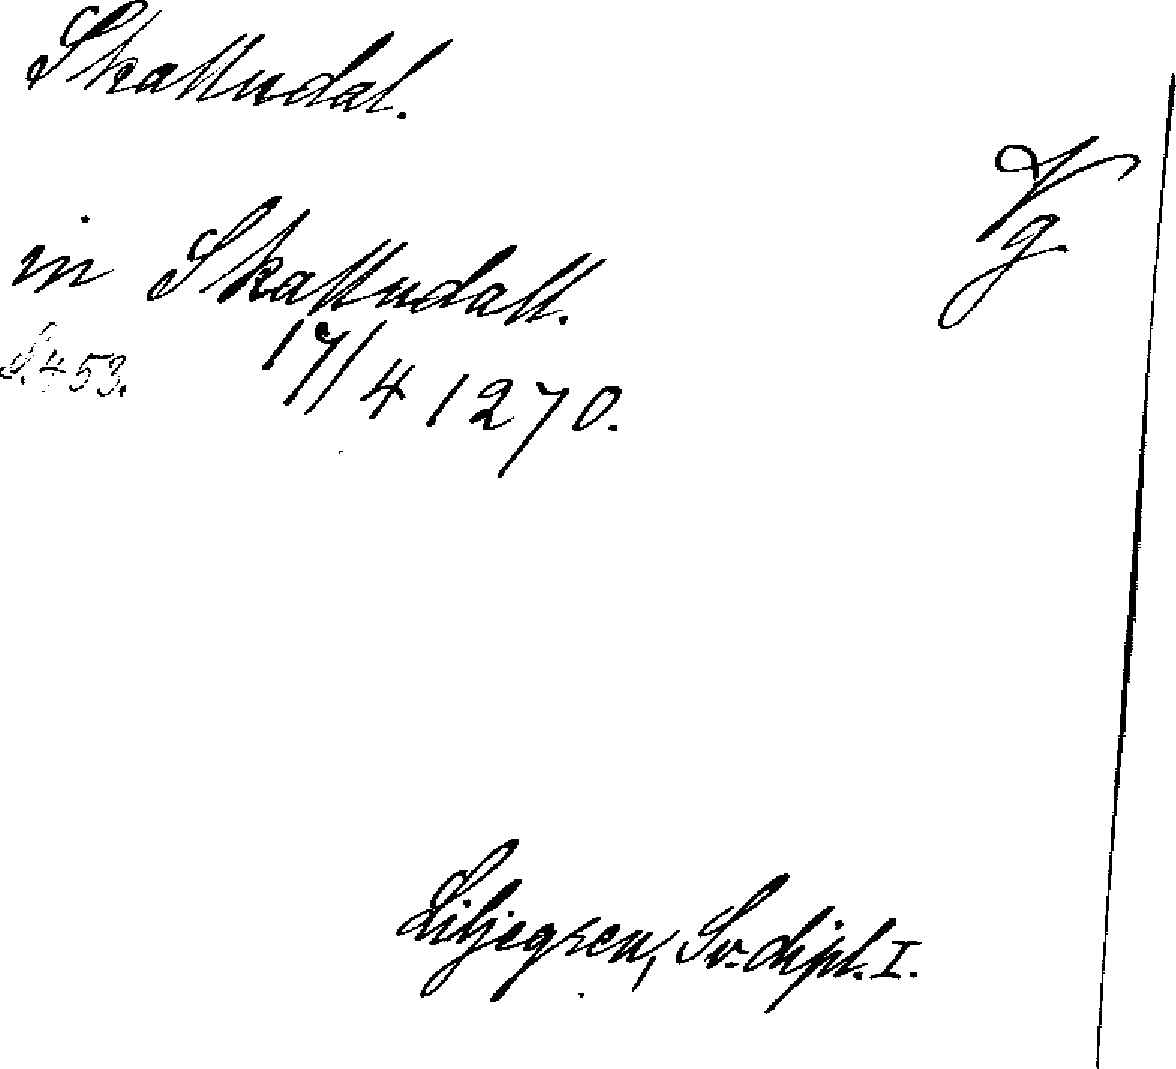 Skattudal.
Vg
in Skattudall.
S. 453. 17/4 1270.
Liljegren, Sv. dipl. I.